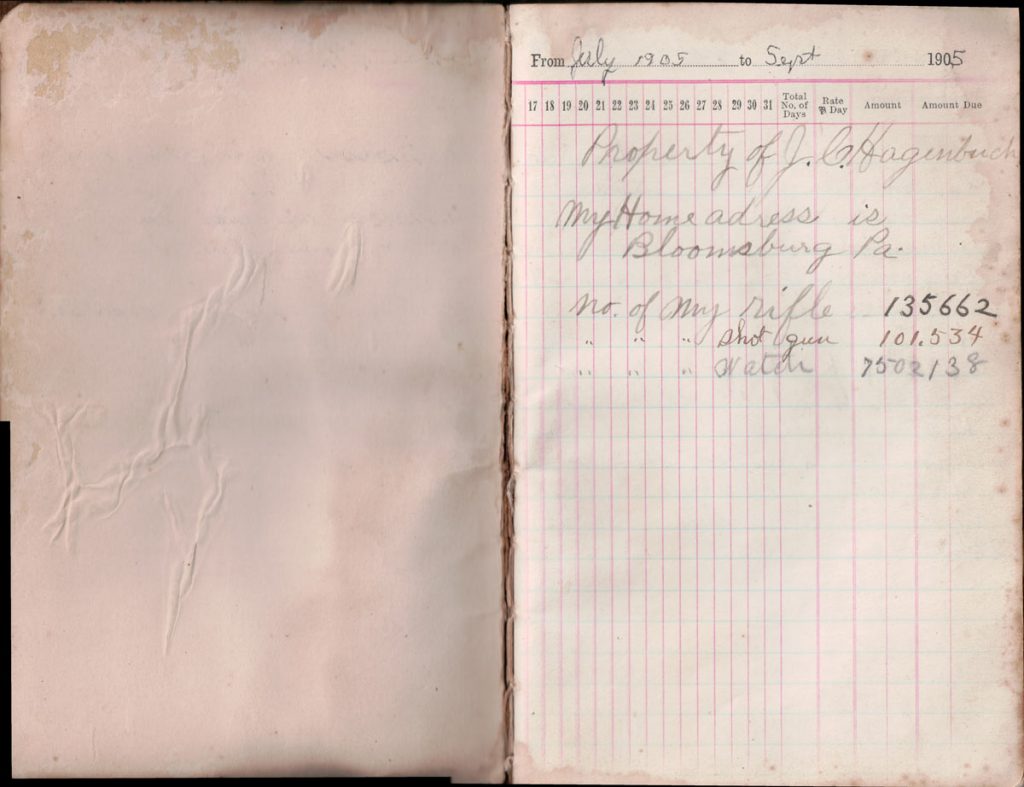 From July 1905 to Sept 1905
17 18 19 20 21 22 23 24 25 26 27 28 29 30 31 Total No. of Days Rate ⅌ Day Amount Amount Due
Property of J. C. Hagenbuch
My Home adress is
Bloomsburg Pa.
No. of My rifle 135662
" " " Shot gun 101.534
" " " Watch 7502138